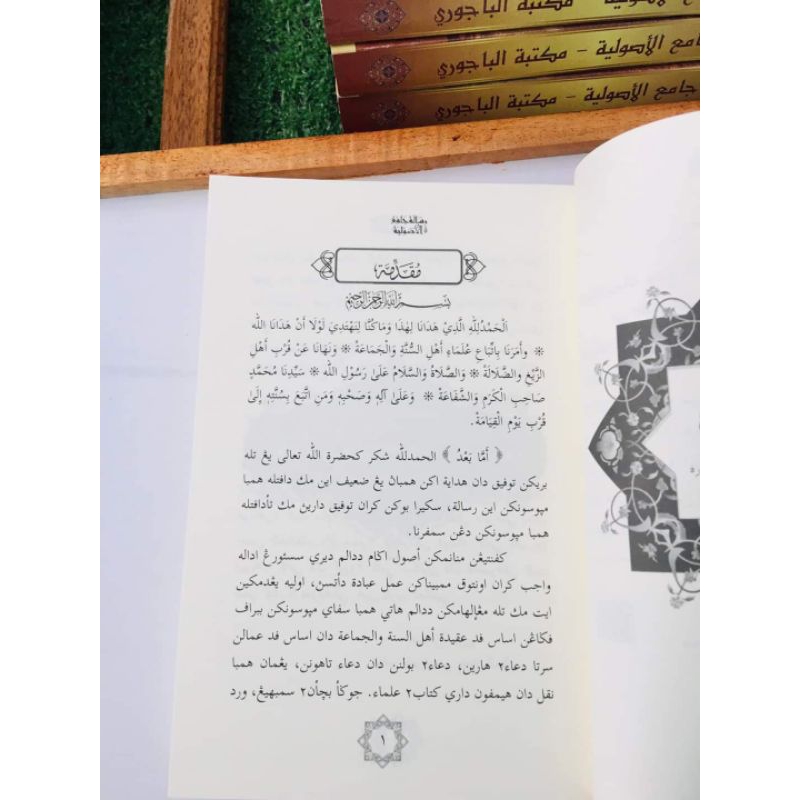 مكتبة الباجوري
جامع الأصولية – مكتبة الباجوري
جامع الأصولية – مكتبة الباجوري
رسالة جامع
الأصولية
مُقَدِّمَة
بِسْمِ اللَّهِ الرَّحْمَنِ الرَّحِيمِ
اَلْحَمْدُلِلّٰهِ الَّذِيْ هَدَانَا لِهٰذَا وَمَاكُنَّا لِنَهْتَدِيَ لَوْلَا أَنْ هَدَانَا اللّٰه
❊ وَأَمَرَنَا بِاتِّبَاعِ عُلَمَاءِ أَهْلِ السُّنَّةِ وَالْجَمَاعَة ❊ وَنَهَانَا عَنْ قُرْبِ أَهْلِ
الزَّيْغِ وَالضَّلَالَة ❊ وَالصَّلَاةُ وَالسَّلَامُ عَلَىٰ رَسُوْلِ اللّٰه ❊ سَيِّدِنَا مُحَمَّدٍ
صَاحِبِ الْكَرَمِ وَالشَّفَاعَة ❊ وَعَلَىٰ آلِهِ وَصَحْبِهِ وَمَنِ اتَّبَعَ بِسُنَّتِهِ إِلَىٰ
قُرْبِ يَوْمِ الْقِيَامَةْ.
﴿ أَمَّا بَعْدُ ﴾ الحمدلله شكر كحضرة الله تعالى يڠ تله
بريكن توفيق دان هداية اكن همباڽ يڠ ضعيف اين مك دافتله همبا
مڽوسونكن اين رسالة، سكيرا بوكن كران توفيق دارين مك تأدافتله
همبا مڽوسونكن دڠن سمفرنا.
كفنتيڠن منانمكن أصول اݢام ددالم ديري سسئورڠ اداله
واجب كران اونتوق ممبيناكن عمل عبادة دأتسڽ، اوليه يڠدمكين
ايت مك تله مڠإلهامكن ددالم هاتي همبا سفاي مڽوسونكن ببراف
فكاڠن اساس فد عقيدة أهل السنة والجماعة دان اساس فد عمالن
سرتا دعاء٢ هارين، دعاء٢ بولنن دان دعاء تاهونن، يڠمان همبا
نقل دان هيمفون داري كتاب٢ علماء. جوݢأ بچأن٢ سمبهيڠ، ورد
١